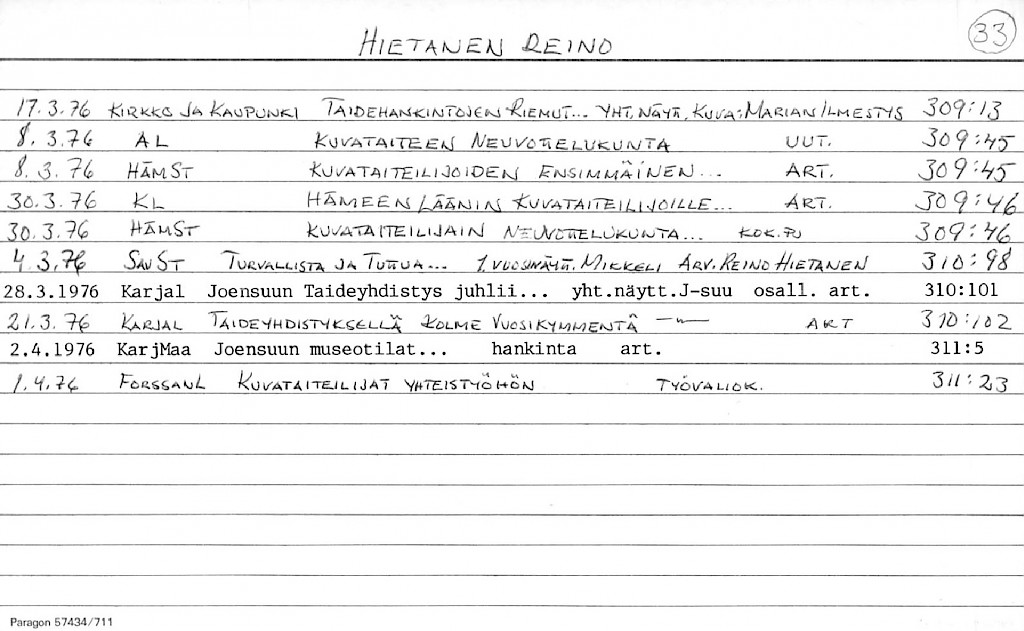 HIETANEN REINO 33
17.3.76 KIRKKO JA KAUPUNKI TAIDEHANKINTOJEN RIEMUT... YHT.NÄYT. KUVA: MARIAN ILMESTYS 309:13
8.3.76 AL KUVATAITEEN NEUVOTTELUKUNTA UUT. 309:45
8.3.76 HÄMST KUVATAITEILIJOIDEN ENSIMMÄINEN... ART. 309:45
30.3.76 KL HÄMEEN LÄÄNIN KUVATAITEILIJOILLE... ART. 309:46
30.3.76 HÄMST KUVATAITEILIJAIN NEUVOTTELUKUNTA... KOK.PJ 309:46
4.3.76 SAVST TURVALLISTA JA TUTTUA... 1. VUOSINÄYTT. MIKKELI ARV. REINO HIETANEN 310:98
28.3.1976 Karjal Joensuun Taideyhdistys juhlii... yht.näytt.J-suu osall. art. 310:101
21.3.76 KARJAL TAIDEYHDISTYKSELLÄ KOLME VUOSIKYMMENTÄ —"— ART 310:102
2.4.1976 KarjMaa Joensuun museotilat... hankinta art. 311:5
1.4.76 FORSSANL KUVATAITEILIJAT YHTEISTYÖHÖN TYÖVALIOK. 311:23
Paragon 57434/711